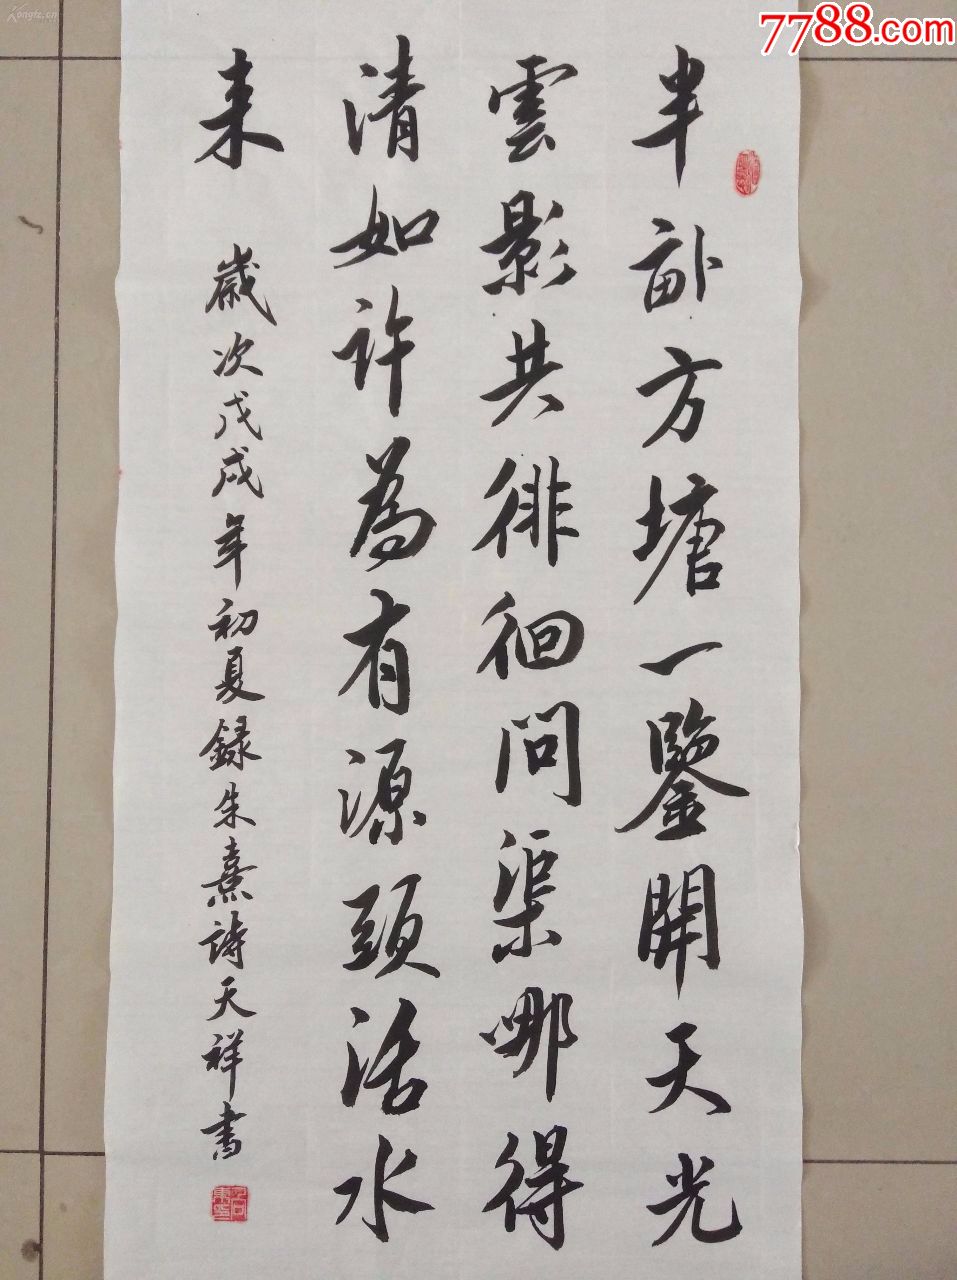 半畝方塘一鑒開天光
雲影共徘徊問渠哪得
清如許為有源頭活水
来
歲次戊戌年初夏録朱熹詩天祥書
7788.com
Kongfz.cn